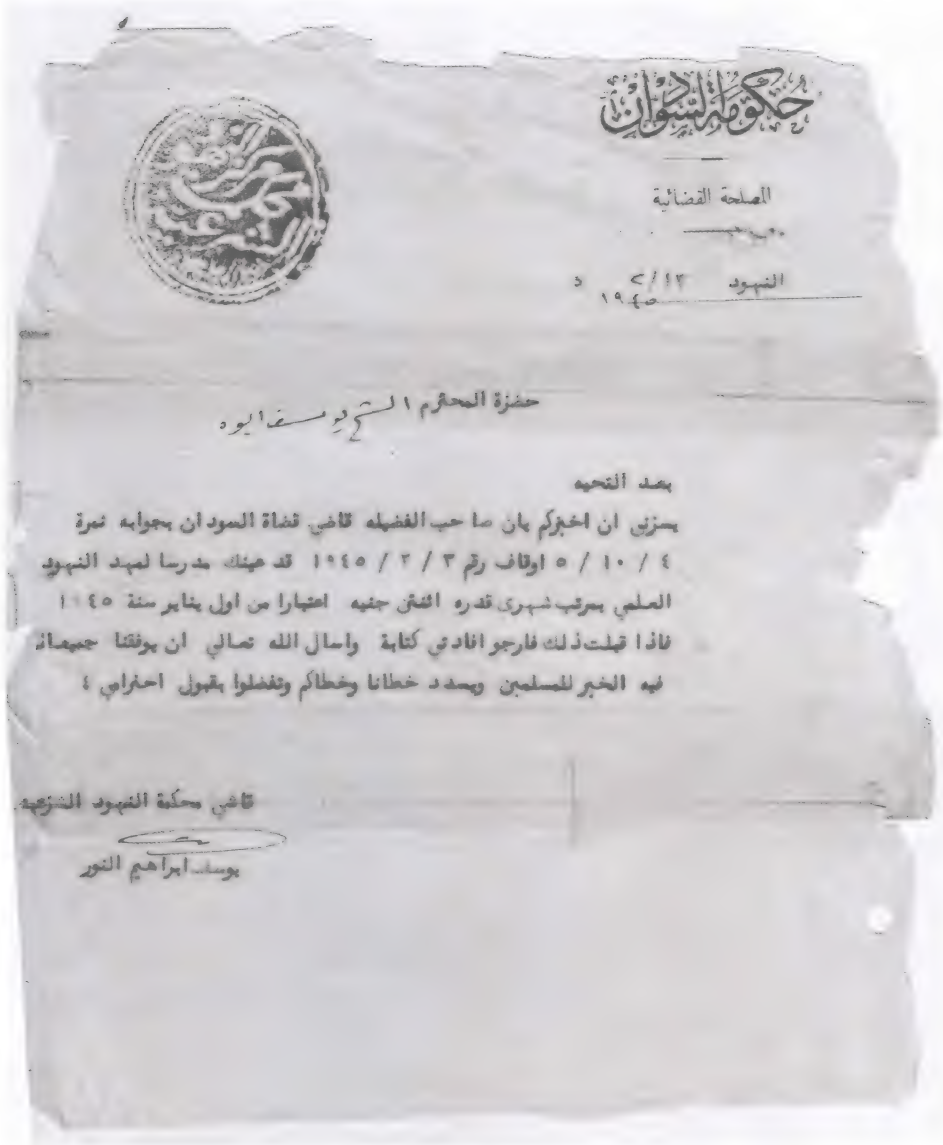 حكومة السودان
المصلحة القضائية
النهود ١٣/٢
١٩٤٥
محكمة
الشرعية
حضرة المحترم الشيخ يوسف
بعد التحيه
يسرنى ان اخبركم بان صاحب الفضيله قاضى قضاة السودان بجوابه نمرة
٤ / ١٠ / ٥ اوقاف رقم ٣ / ٢ / ١٩٤٥ قد عينك مدرسا لمعهد النهود
العلمي بمرتب شهرى قدره اثنتن جنيه اعتبارا من اول يناير سنة ١٩٤٥
فاذا قبلت ذلك فارجو افادتي كتابة واسال الله تعالي ان يوفقنا جميعا لما
فيه الخير للمسلمين ويسدد خطانا وخطاكم وتفضلوا بقبول احترامي ٤
قاضى محكمة النهود الشرعيه
يوسف ابراهيم النور